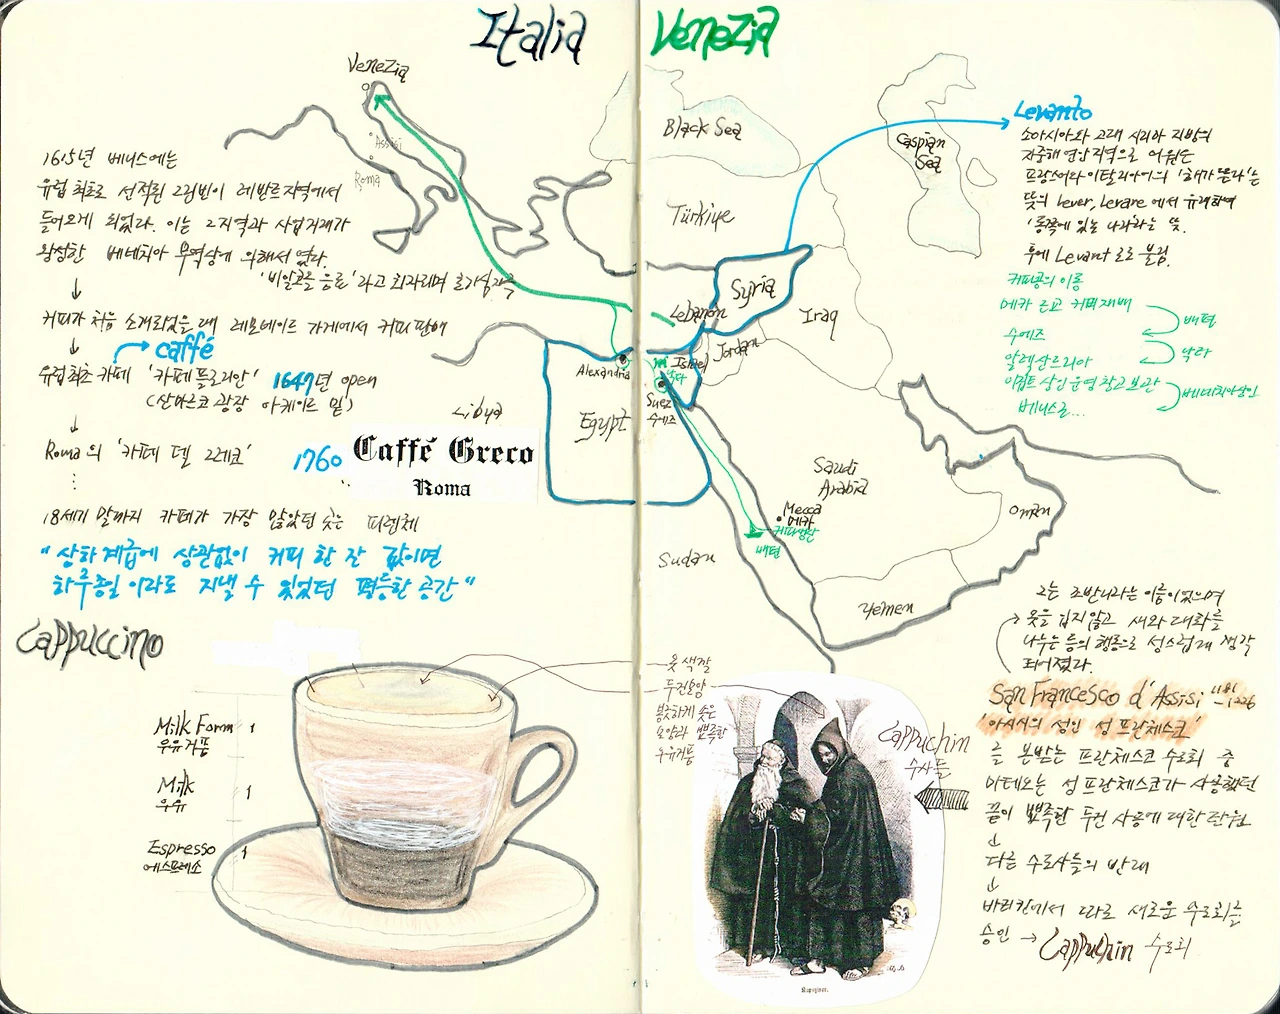 Italia
Venezia
Venezia
Assisi
Roma
1615년 베니스에는
유럽 최초로 선적된 그린빈이 레반트 지역에서
들어오게 되었다. 이는 그 지역과 사업거래가
왕성한 베네치아 무역상에 의해서 였다.
'비알코올 음료'라고 회자되며
↓
커피가 처음 소개되었을 때 레모네이드 가게에서 커피 판매
↓
caffé
유럽 최초 카페 '카페 플로리안' 1647년 open
(산마르코 광장 아케이드 밑)
↓
Roma의 '카페 델 그레코' 1760
Caffé Greco
Roma
18세기 말까지 카페가 가장 많았던 곳는 피렌체
"상하 계급에 상관없이 커피 한 잔 값이면
하루종일 이라도 지낼 수 있었던 평등한 공간"
Black Sea
Caspian
Sea
Türkiye
Syria
Lebanon
Iraq
Israel
Jordan
Alexandria
Suez
수에즈
Libya
Egypt
Saudi
Arabia
Mecca
메카
커피생산
배편
Oman
Sudan
Yemen
Levanto
소아시아와 고대 시리아 지방의
지중해 연안지역으로 어원은
프랑스어와 이탈리아어의 '해가 뜬다'는
뜻의 Lever, Levare 에서 유래하여
'동쪽에 있는 나라'라는 뜻.
후에 Levant 로 불림.
커피콩의 이동
메카 근교 커피재배
배편
수에즈
낙타
알렉산드리아
이집트 상인 운영 창고 보관
베네치아상인
베니스로...
Cappuccino
Milk Form 1
우유거품
Milk 1
우유
Espresso 1
에스프레소
옷 색깔
두건모양
봉긋하게 솟은
모양과 뾰족한
우유거품
Cappuchin
수사들
Kapuziner.
그는 조반니라는 이름이었으며
옷을 입지않고 새와 대화를
나누는 등의 행동으로 성스럽게 생각
되어졌다.
San Francesco d'Assisi 1181-1226
'아시시의 성인 성 프란체스코'
를 본받는 프란체스코 수도회 중
마테오는 성 프란체스코가 사용했던
끝이 뾰족한 두건 사용에 대한 탄원
↓
다른 수도사들의 반대
↓
바티칸에서 따로 새로운 수도회를
승인 → Cappuchin 수도회